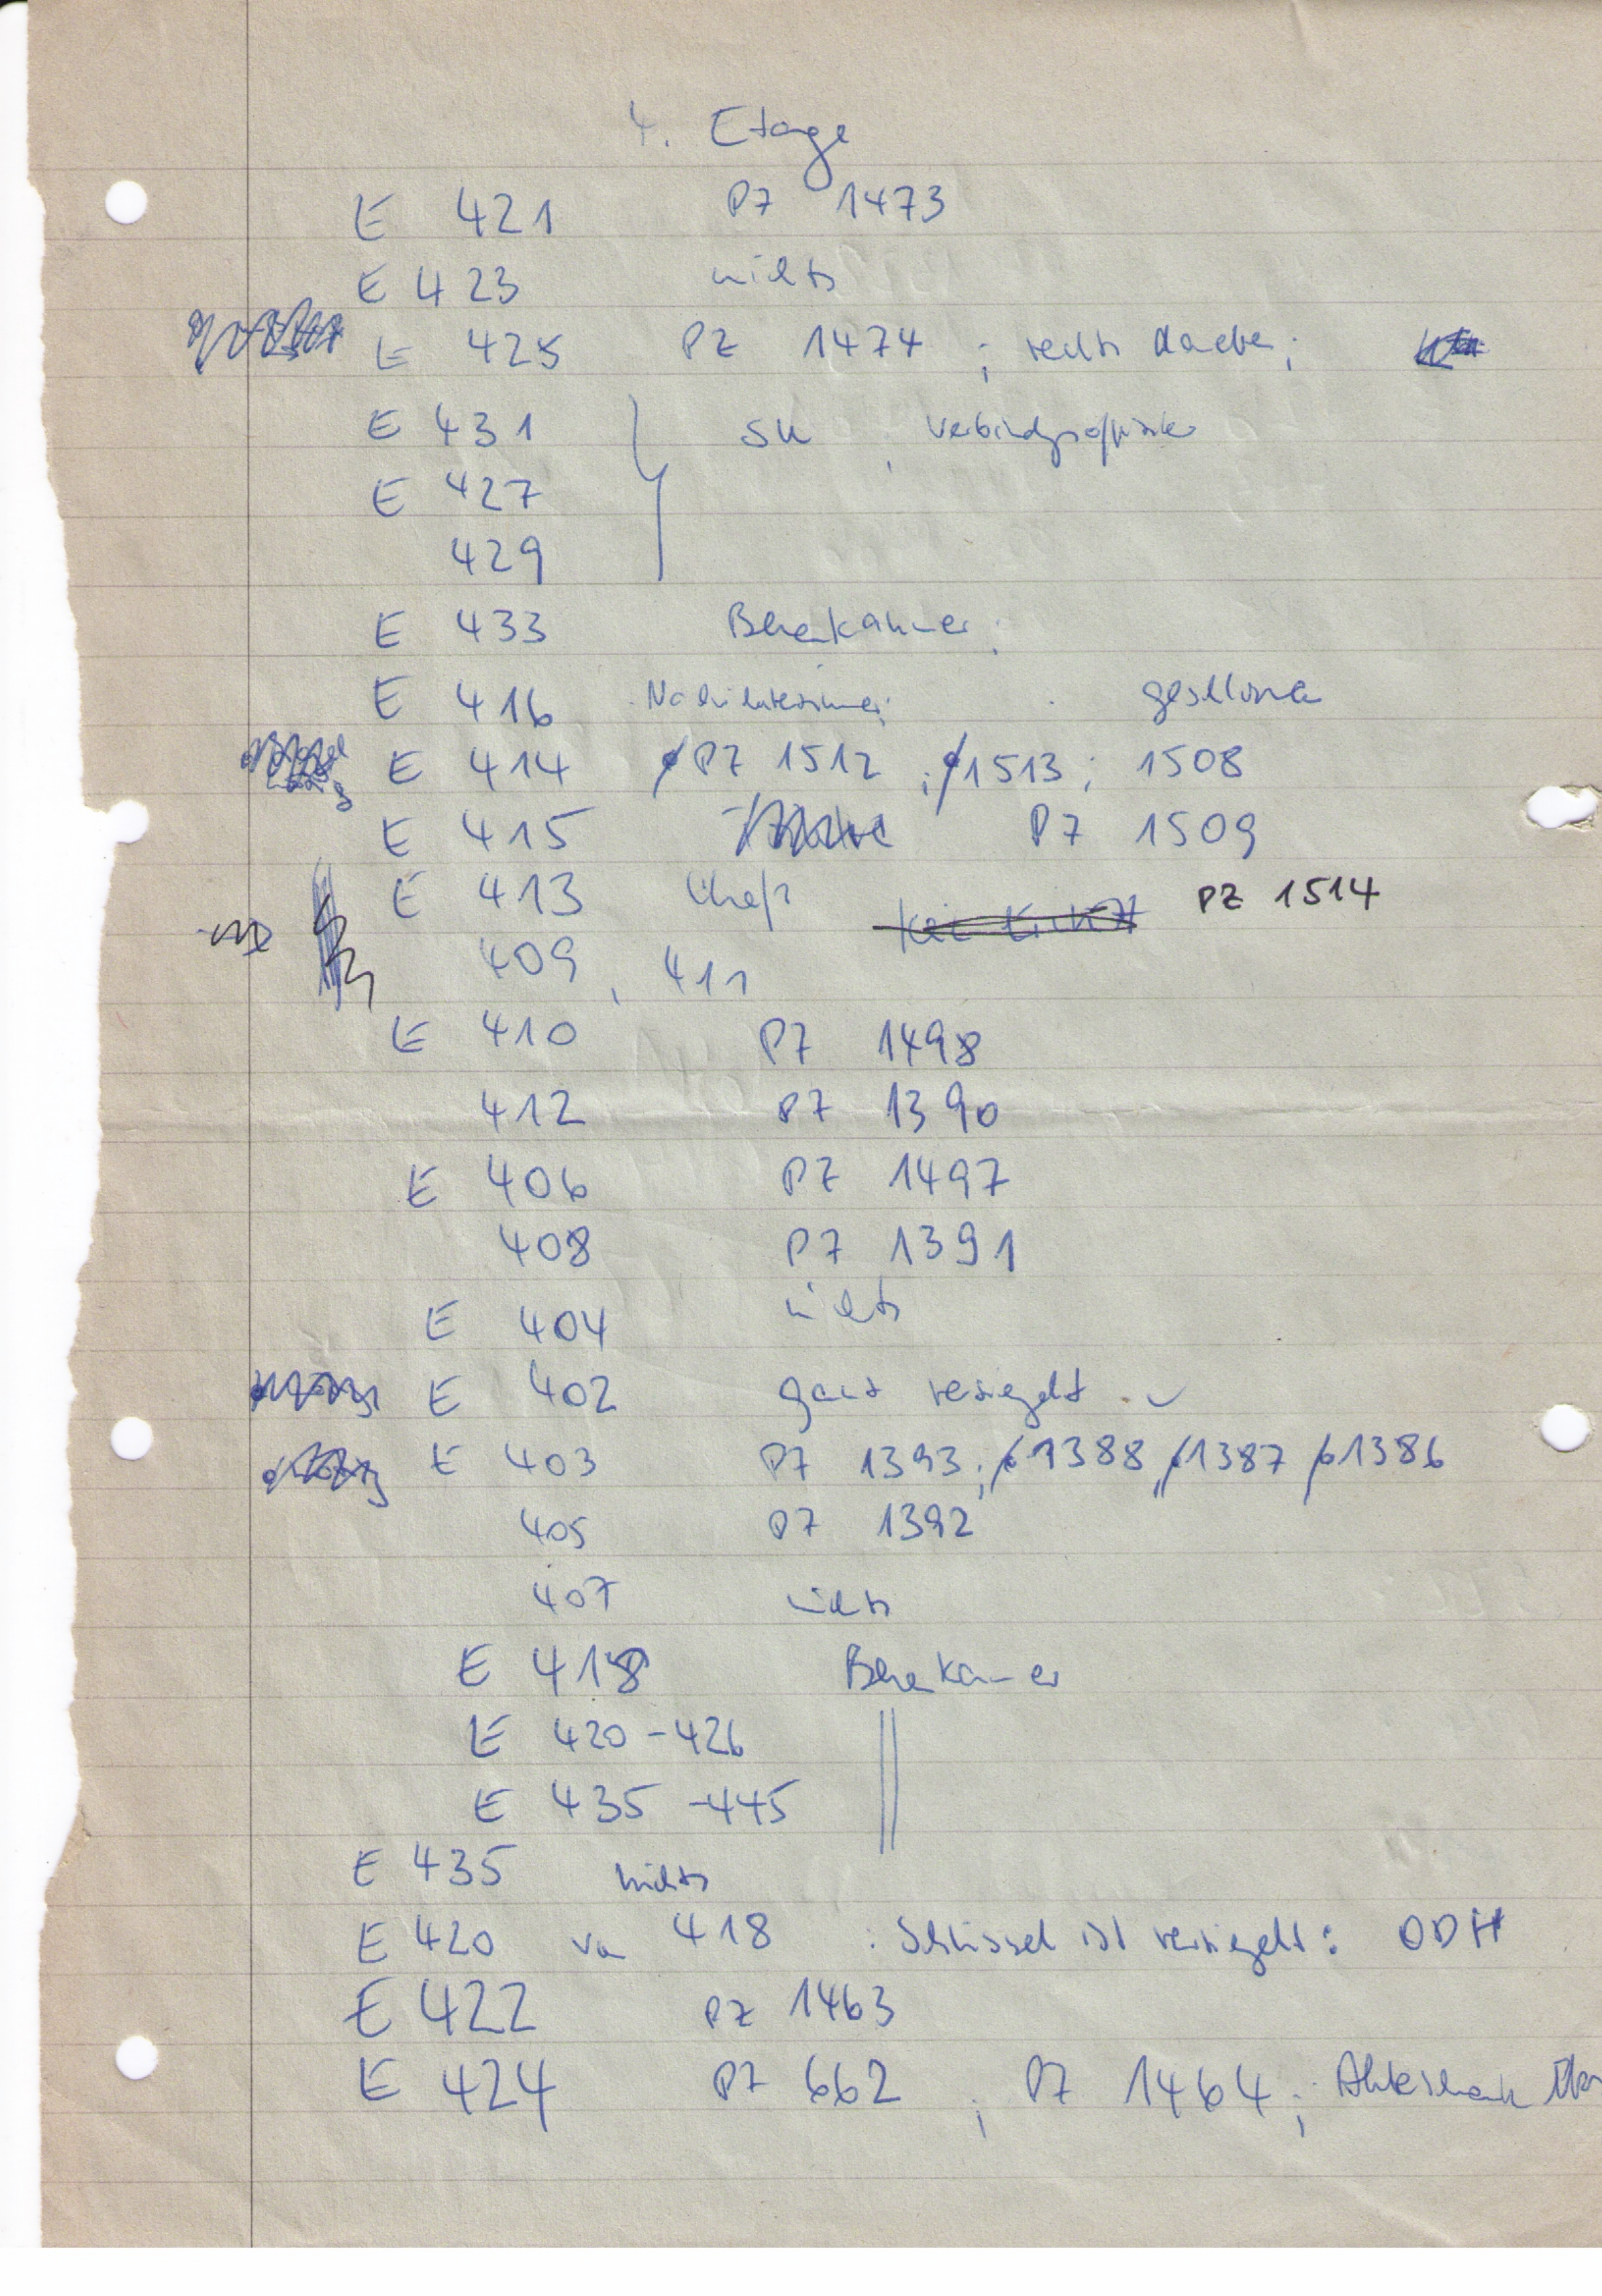 4. Etage
E 421 PZ 1473
E 423 nichts
E 425 PZ 1474 ; rechts daneben;
E 431 SK , Verbindungsoffizier
E 427
429
E 433 Besenkammer;
E 416 geschlossen
E 414 PZ 1512 ; 1513 ; 1508
E 415 PZ 1509
E 413 PZ 1514
409 , 411
E 410 PZ 1498
412 PZ 1390
E 406 PZ 1497
408 PZ 1391
E 404 nichts
E 402 ganz versiegelt
E 403 PZ 1393 ; 1388 , 1387 1386
405 PZ 1392
407 nichts
E 418 Besenkammer
E 420 - 426
E 435 - 445
E 435 nichts
E 420 von 418 . Schlüssel ist versiegelt : ODH
E 422 PZ 1463
E 424 PZ 662 ; PZ 1464 ; Aktenschrank